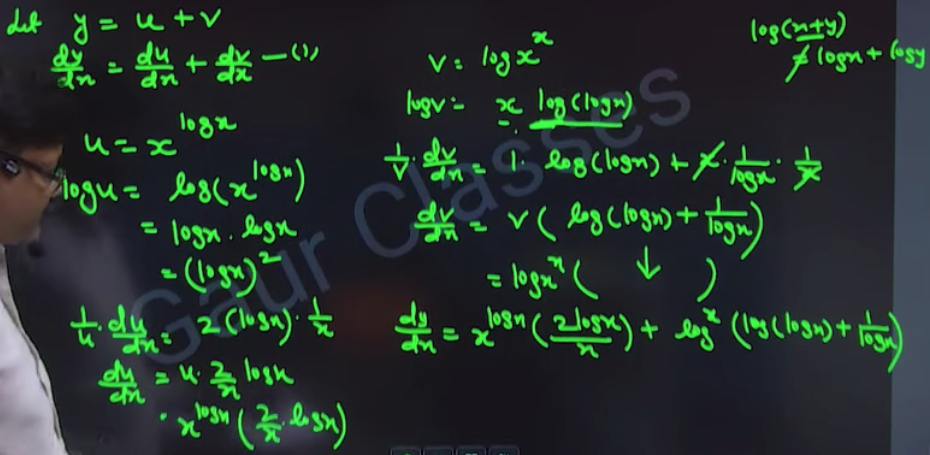 Let y = u + v
dy/dx = du/dx + dv/dx — (1)
u = x^(logx)
logu = log(x^(logx))
= logx . logx
= (logx)^2
1/u . du/dx = 2(logx) . 1/x
du/dx = u . 2/x logx
. x^(logx) (2/x . logx)
log(x+y)
≠ logx + logy
v = logx^x
logv = x log(logx)
1/v . dv/dx = 1 . log(logx) + x . 1/logx . 1/x
dv/dx = v ( log(logx) + 1/logx )
= logx^x ( ↓ )
dy/dx = x^(logx) (2logx/x) + log^x (log(logx) + 1/logx)
Gaur Classes